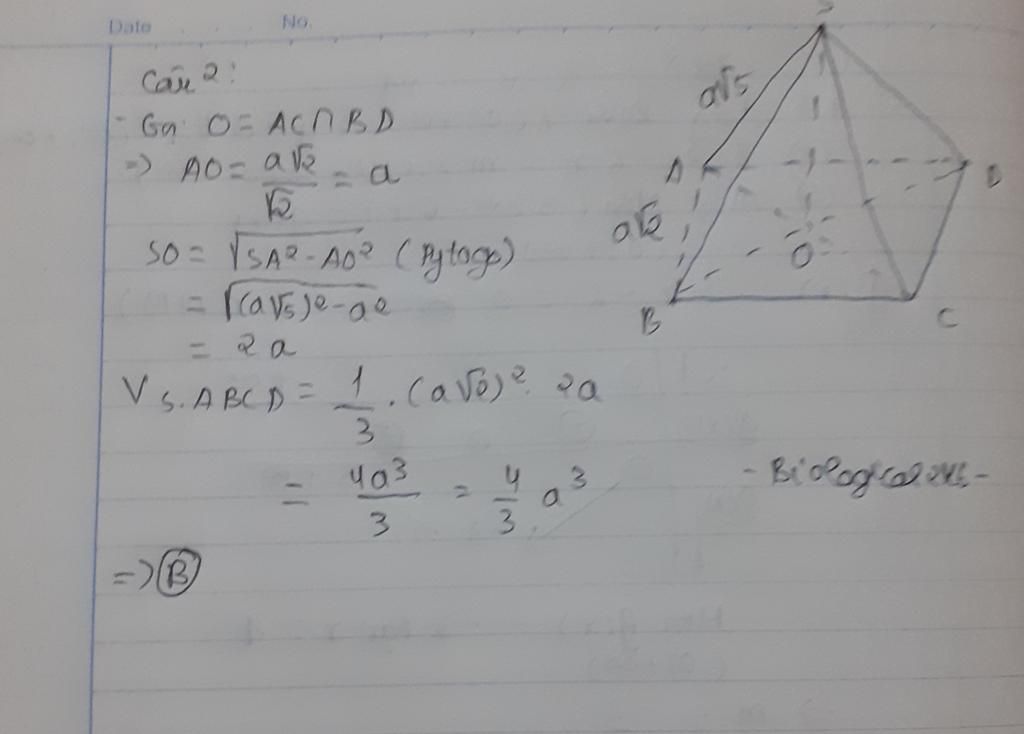 Date No.
Câu 2:
- Gọi O = AC ∩ BD
=> AO = a√2/√2 = a
SO = √(SA² - AO²) (Pytago)
= √((a√5)² - a²)
= 2a
V S.ABCD = 1/3 . (a√2)² . 2a
= 4a³/3 = 4/3 a³
=> B
S
a√5
A
D
a√2
O
B
C